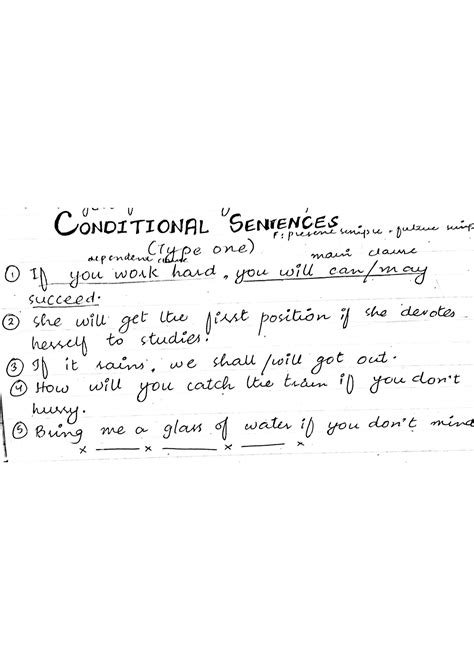 CONDITIONAL SENTENCES
: present simple . future simp
(Type one)
dependent clause main clause
① If you work hard, you will can/may
succeed.
② She will get the first position if she devotes
herself to studies.
③ If it rains, we shall/will got out.
④ How will you catch the train if you don't
hurry.
⑤ Bring me a glass of water if you don't mind
× —— × —— × —— ×